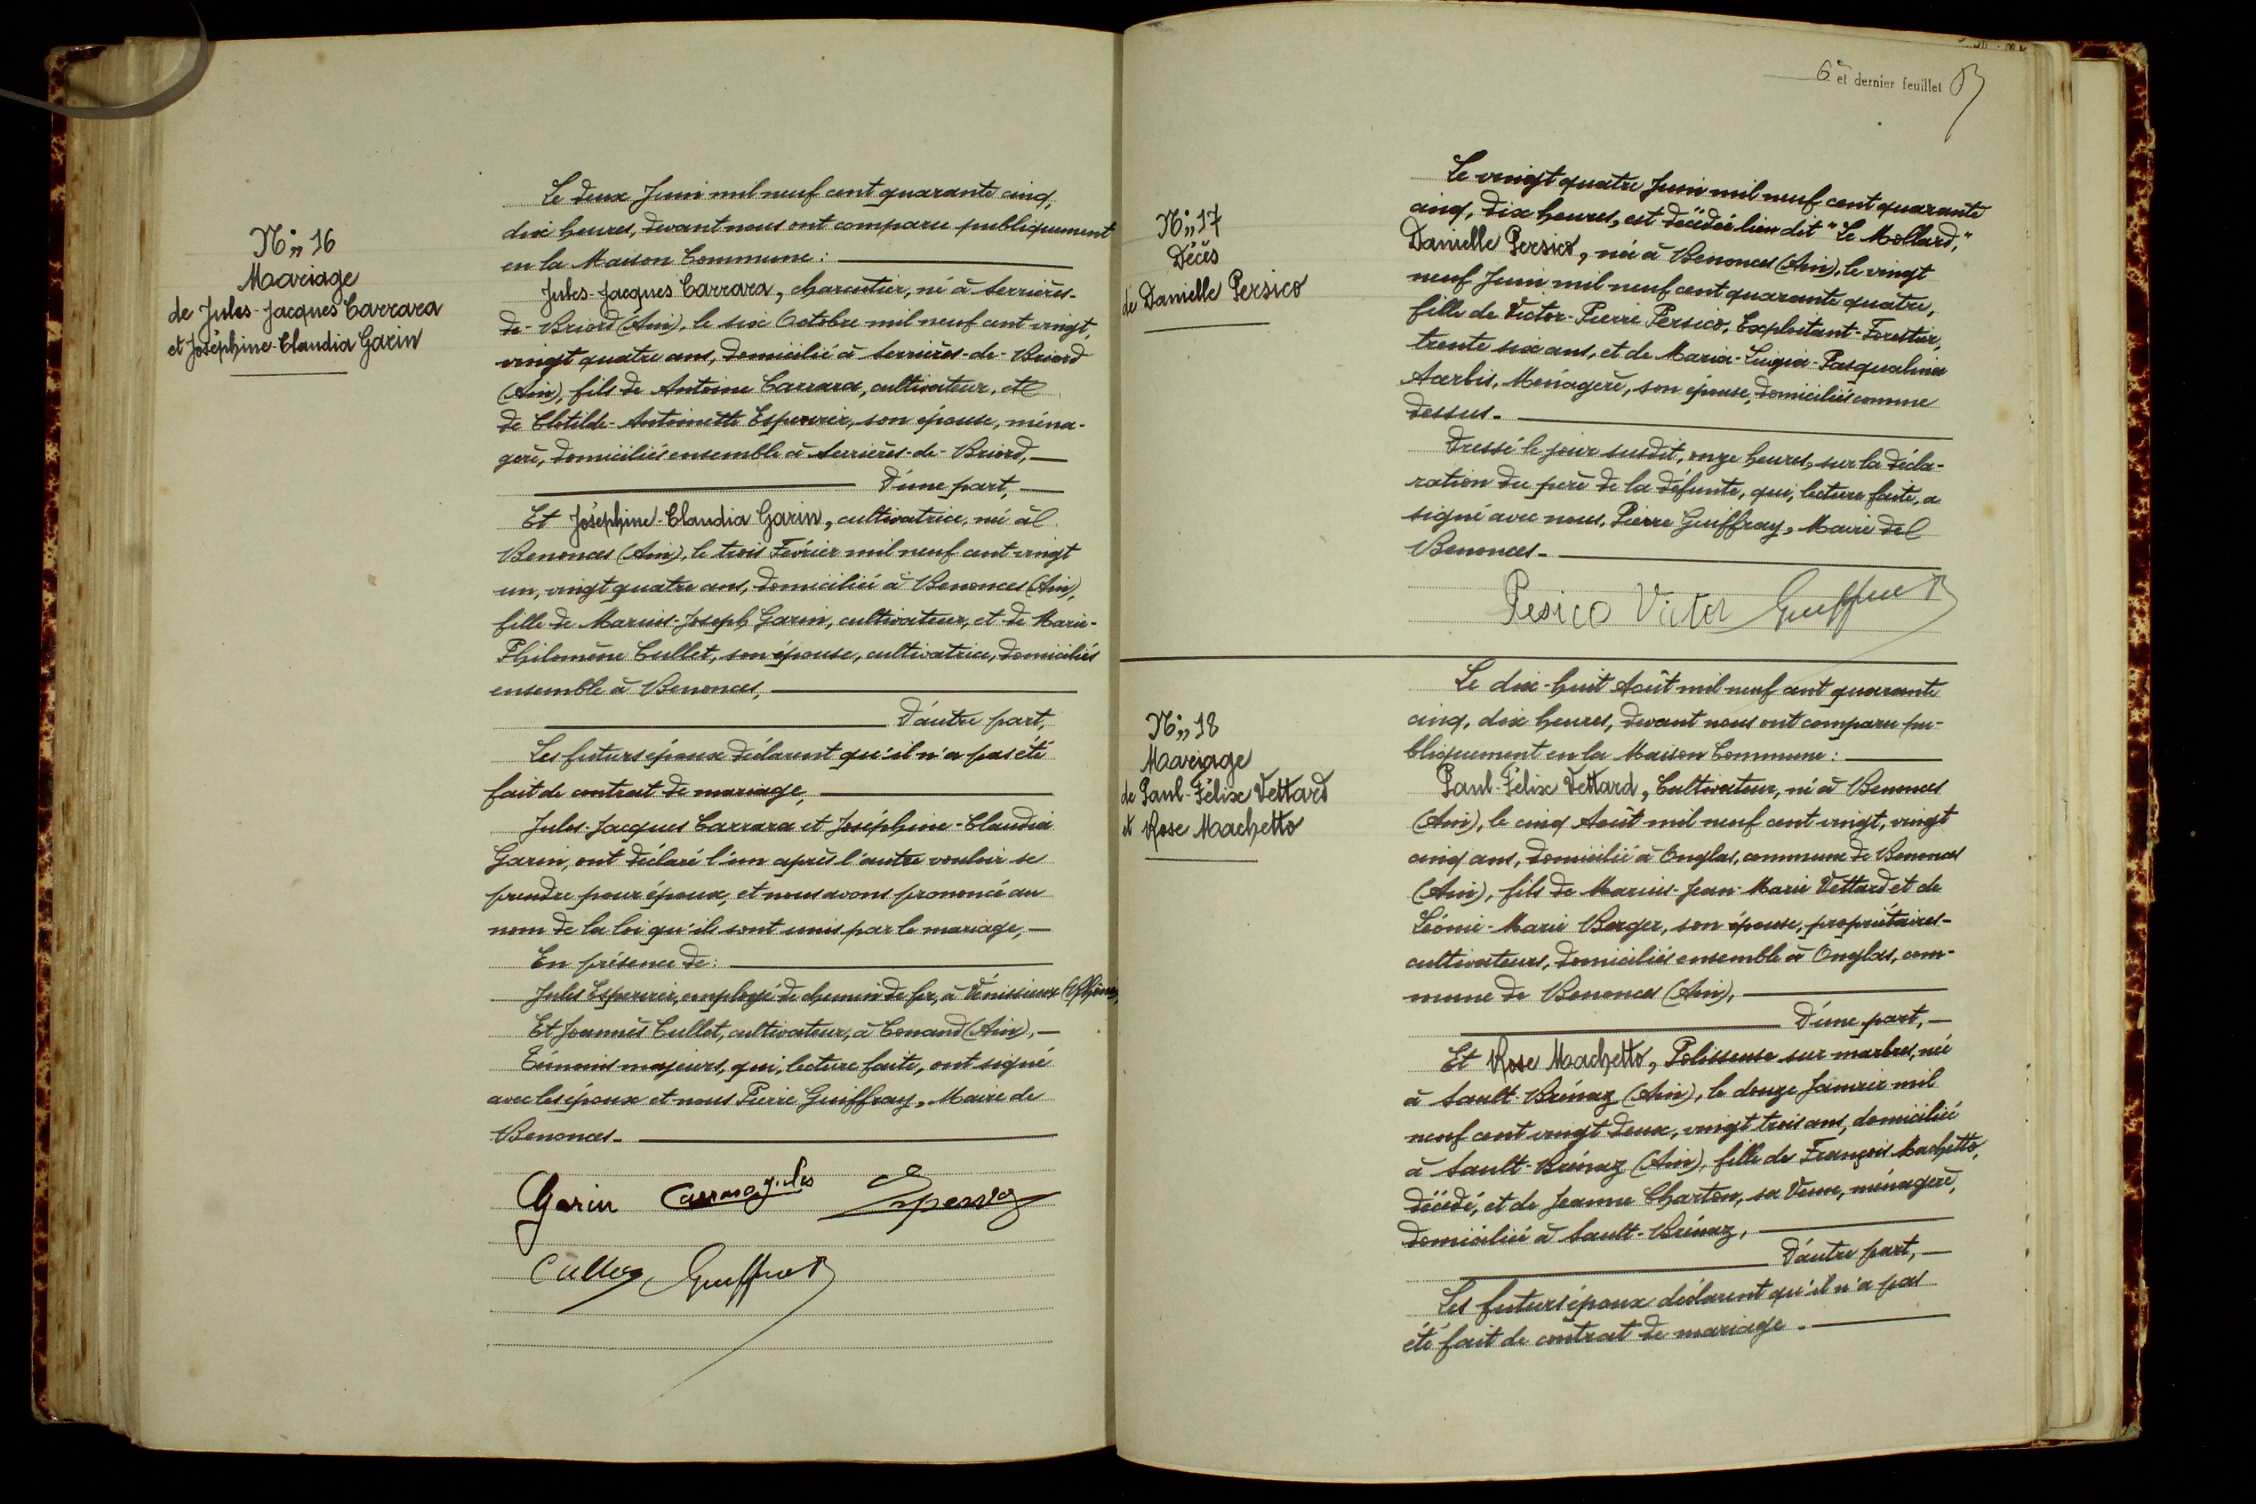 N° 16
Mariage
de Jules-Jacques Carrara
et Joséphine-Claudia Garin
Le deux Juin mil neuf cent quarante cinq,
dix heures, devant nous ont comparu publiquement
en la Maison Commune :
Jules-Jacques Carrara, charcutier, né à Serrières-
de-Briord (Ain), le six Octobre mil neuf cent vingt,
vingt quatre ans, domicilié à Serrières-de-Briord
(Ain), fils de Antoine Carrara, cultivateur, et
de Clotilde-Antoinette Esperrier, son épouse, ména-
gère, domiciliés ensemble à Serrières-de-Briord,
D'une part,
Et Joséphine-Claudia Garin, cultivatrice, née à
Benonces (Ain), le trois Février mil neuf cent vingt
un, vingt quatre ans, domiciliée à Benonces (Ain),
fille de Marius-Joseph Garin, cultivateur, et de Marie-
Philomène Cullet, son épouse, cultivatrice, domiciliés
ensemble à Benonces,
D'autre part,
Les futurs époux déclarent qu'il n'a pas été
fait de contrat de mariage,
Jules-Jacques Carrara et Joséphine-Claudia
Garin, ont déclaré l'un après l'autre vouloir se
prendre pour époux, et nous avons prononcé au
nom de la loi qu'ils sont unis par le mariage,
En présence de :
Jules Esperrier, employé de chemin de fer, à Vénissieux (Rhône),
Et Joannès Cullet, cultivateur, à Conand (Ain),
Témoins majeurs, qui, lecture faite, ont signé
avec les époux et nous Pierre Guiffray, Maire de
Benonces.
Garin Carrara Jules
Cullet Guiffray
6e et dernier feuillet
N° 17
Décès
de Danielle Persico
Le vingt quatre Juin mil neuf cent quarante
cinq, dix heures, est décédée lieu dit "Le Mollard,"
Danielle Persico, née à Benonces (Ain), le vingt
neuf Juin mil neuf cent quarante quatre,
fille de Victor-Pierre Persico, Exploitant-Forestier,
trente six ans, et de Maria-Luigia-Pasqualina
Ménagère, son épouse, domiciliés comme
dessus.
Dressé le jour susdit, onze heures, sur la décla-
ration du père de la défunte, qui, lecture faite, a
signé avec nous, Pierre Guiffray, Maire de
Benonces.
Pesico Victor Guiffray
N° 18
Mariage
de Paul-Félix Vettard
et Rose Machetto
Le dix-huit Août mil neuf cent quarante
cinq, dix heures, devant nous ont comparu pu-
bliquement en la Maison Commune :
Paul-Félix Vettard, Cultivateur, né à Benonces
(Ain), le cinq Août mil neuf cent vingt, vingt
cinq ans, domicilié à Onglas, commune de Benonces
(Ain), fils de Marius-Jean-Marie Vettard et de
Léonie-Marie Berger, son épouse, propriétaires-
cultivateurs, domiciliés ensemble à Onglas, com-
mune de Benonces (Ain),
D'une part,
Et Rose Machetto, Polisseuse sur marbres, née
à Sault-Brénaz (Ain), le douze Janvier mil
neuf cent vingt deux, vingt trois ans, domiciliée
à Sault-Brénaz (Ain), fille de François Machetto,
décédé, et de Jeanne Charton, sa Veuve, ménagère,
domiciliée à Sault-Brénaz,
D'autre part,
Les futurs époux déclarent qu'il n'a pas
été fait de contrat de mariage.